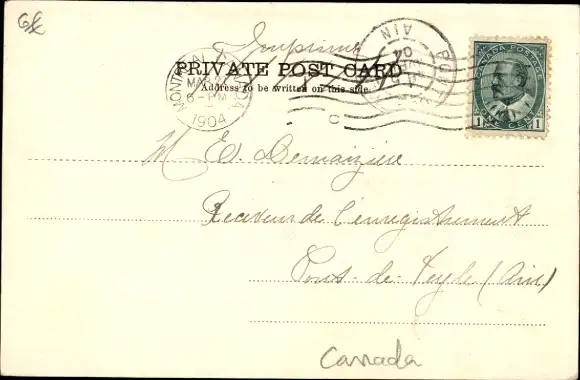 Imprimé
PRIVATE POST CARD
Address to be written on this side.
MONTREAL CANADA
6-PM
1904
AIN
04
CANADA POSTAGE
1 CENT 1
M E. Demaizière
Receveur de l'enregistrement
Pont-de-Veyle (Ain)
Canada